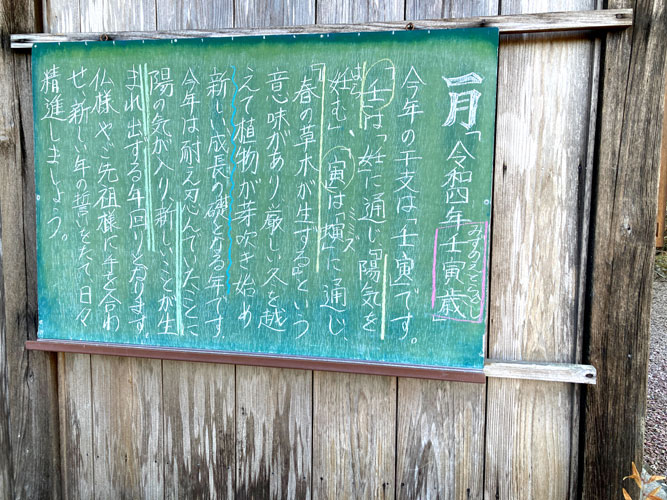 一月「令和四年壬寅歳」
みずのえとらどし
今年の干支は「壬寅」です。
「壬」は「妊」に通じ「陽気を
はら
妊む」、「寅」は「螾」に通じ、
ミミズ
「春の草木が生ずる」という
意味があり、厳しい冬を越
えて植物が芽吹き始め
新しい成長の礎となる年です
今年は耐え忍んでいたことに
陽の気が入り、新しいことが生
まれ出する年回りとなります
仏様やご先祖様に手を合わ
せ新しい年の誓いをたて、日々
精進しましょう。